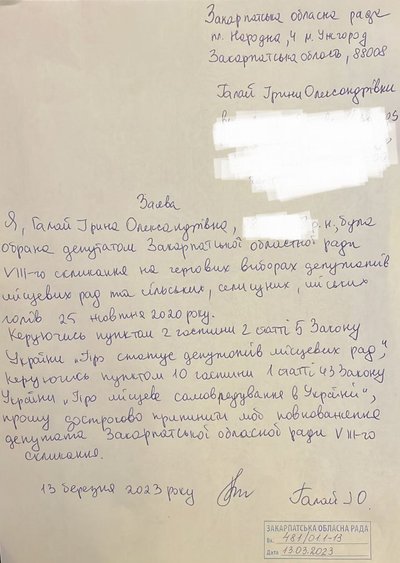 Закарпатська обласна рада
пл. Народна, 4 м. Ужгород
Закарпатська область, 88008
Галай Ірини Олександрівни
Заява
Я, Галай Ірина Олександрівна, р.н., була
обрана депутатом Закарпатської обласної ради
VIII-го скликання на чергових виборах депутатів
місцевих рад та сільських, селищних, міських
голів 25 жовтня 2020 року.
Керуючись пунктом 2 частини 2 статті 5 Закону
України „Про статус депутатів місцевих рад",
керуючись пунктом 10 частини 1 статті 43 Закону
України „Про місцеве самоврядування в Україні",
прошу достроково припинити мої повноваження
депутата Закарпатської обласної ради VIII-го
скликання.
13 березня 2023 року Галай І.О.
ЗАКАРПАТСЬКА ОБЛАСНА РАДА
Вх. 481/01.1-13
Дата 13.03.2023